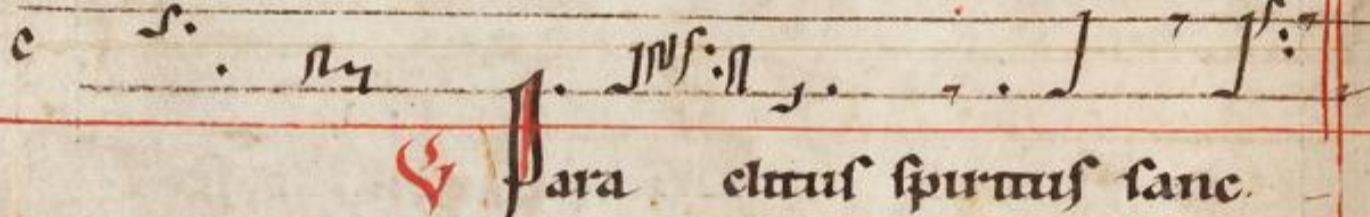 c
℣ Para clitus spiritus sanc.